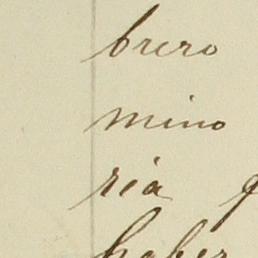 brero
mino
ria g
haber